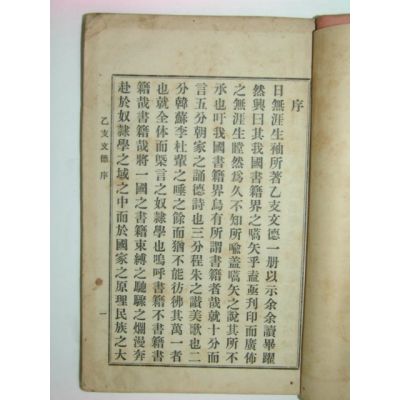 序
日無涯生袖所著乙支文德一册以示余余讀畢躍
然興曰其我國書籍界之嚆矢乎盍亟刋印而廣佈
之無涯生瞠然爲久不知所喩盖嚆矢之說其所不
承也吁我國書籍界烏有所謂書籍者哉就十分而
言五分朝家之誦德詩也三分程朱之讚美歌也二
分韓蘇李杜輩之唾之餘而猶不能彷彿其萬一者
也就全体而槩言之奴隷學也嗚呼書籍不書籍書
籍哉書籍哉將一國之書籍束縛之馳驟之爛漫奔
赴於奴隷學之域之中而於國家之原理民族之大
乙支文德 序 一